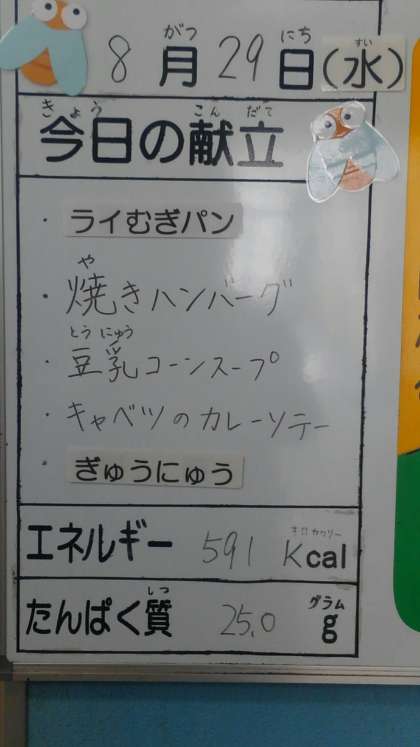 がつ にち すい
8月29日(水)
きょう こんだて
今日の献立
・ライむぎパン
や
・焼きハンバーグ
とうにゅう
・豆乳コーンスープ
・キャベツのカレーソテー
・ぎゅうにゅう
キロカロリー
エネルギー 591 Kcal
しつ グラム
たんぱく質 25.0 g